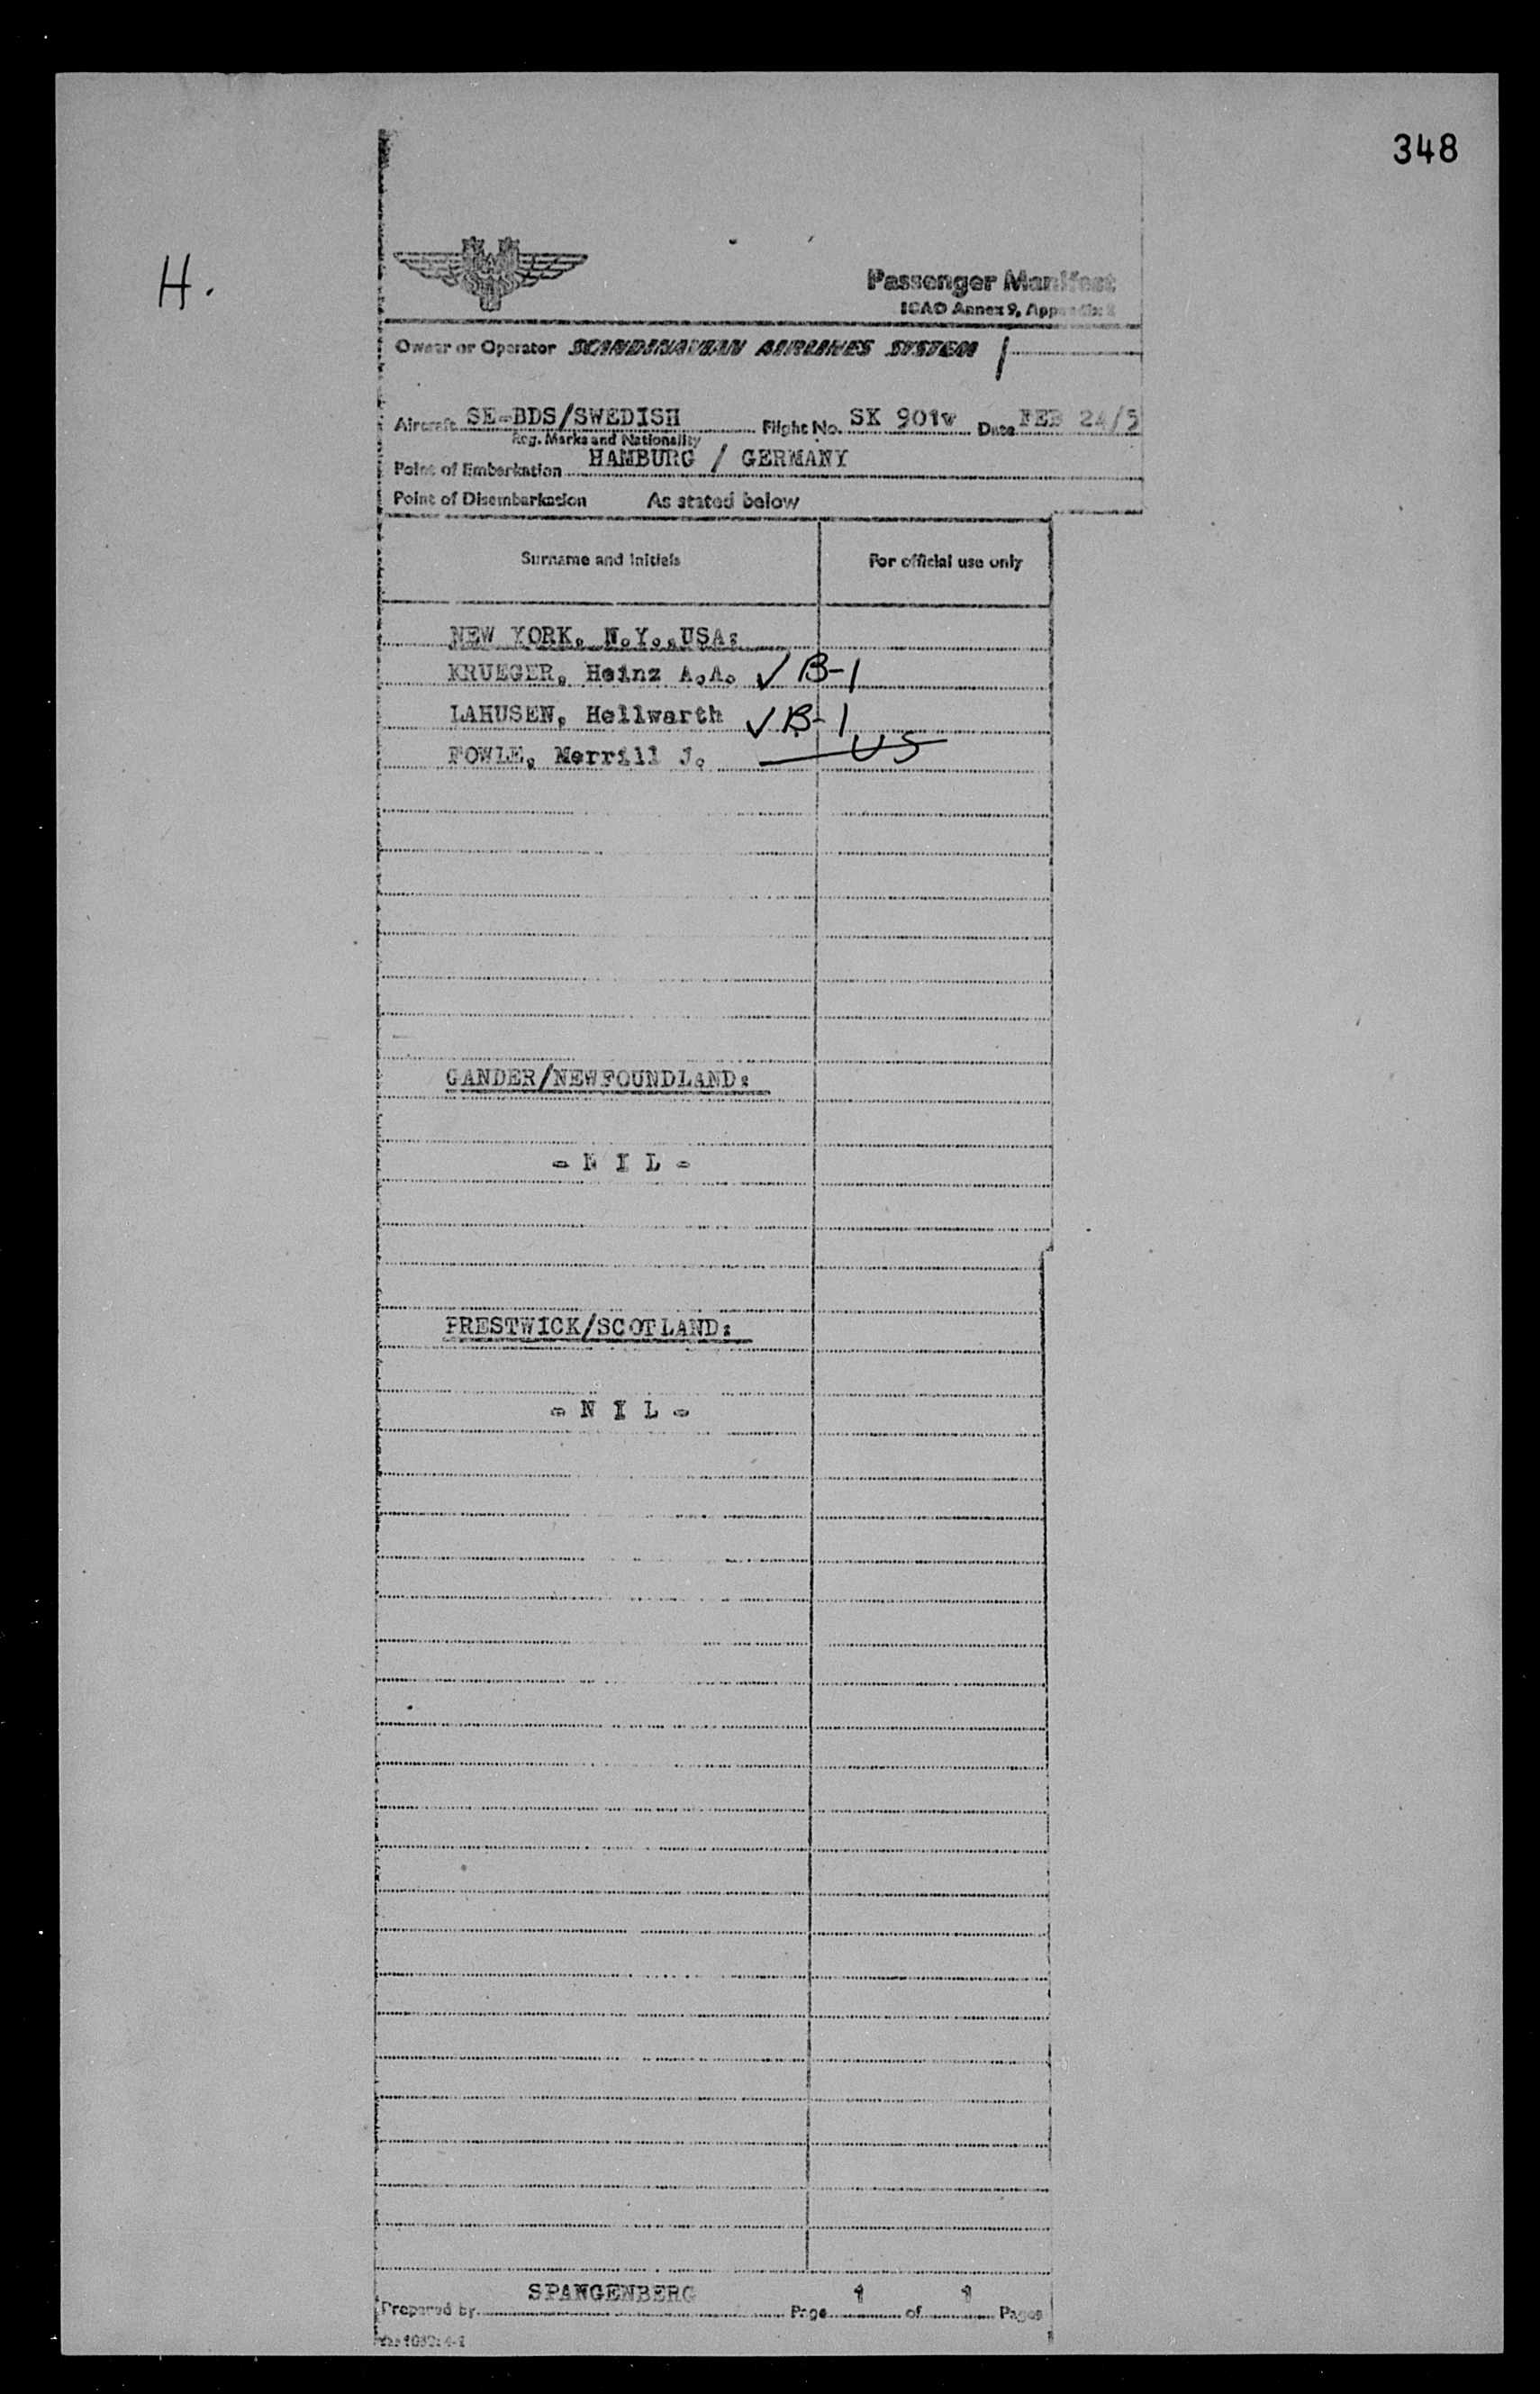 348
H.
Passenger Manifest
ICAO Annex 9, Appendix 2
Owner or Operator SCANDINAVIAN AIRLINES SYSTEM
Aircraft SE-BDS/SWEDISH Flight No. SK 901w Date FEB 24/5
Reg. Marks and Nationality
Point of Embarkation HAMBURG / GERMANY
Point of Disembarkation As stated below
Surname and initials For official use only
NEW YORK, N.Y.,USA:
KRUEGER, Heinz A.A. ✓ B-1
LAHUSEN, Hellwarth ✓ B-1
FOWLE, Merrill J. — US
GANDER/NEWFOUNDLAND:
- N I L -
PRESTWICK/SCOTLAND:
- N I L -
Prepared by SPANGENBERG Page 1 of 1 Pages